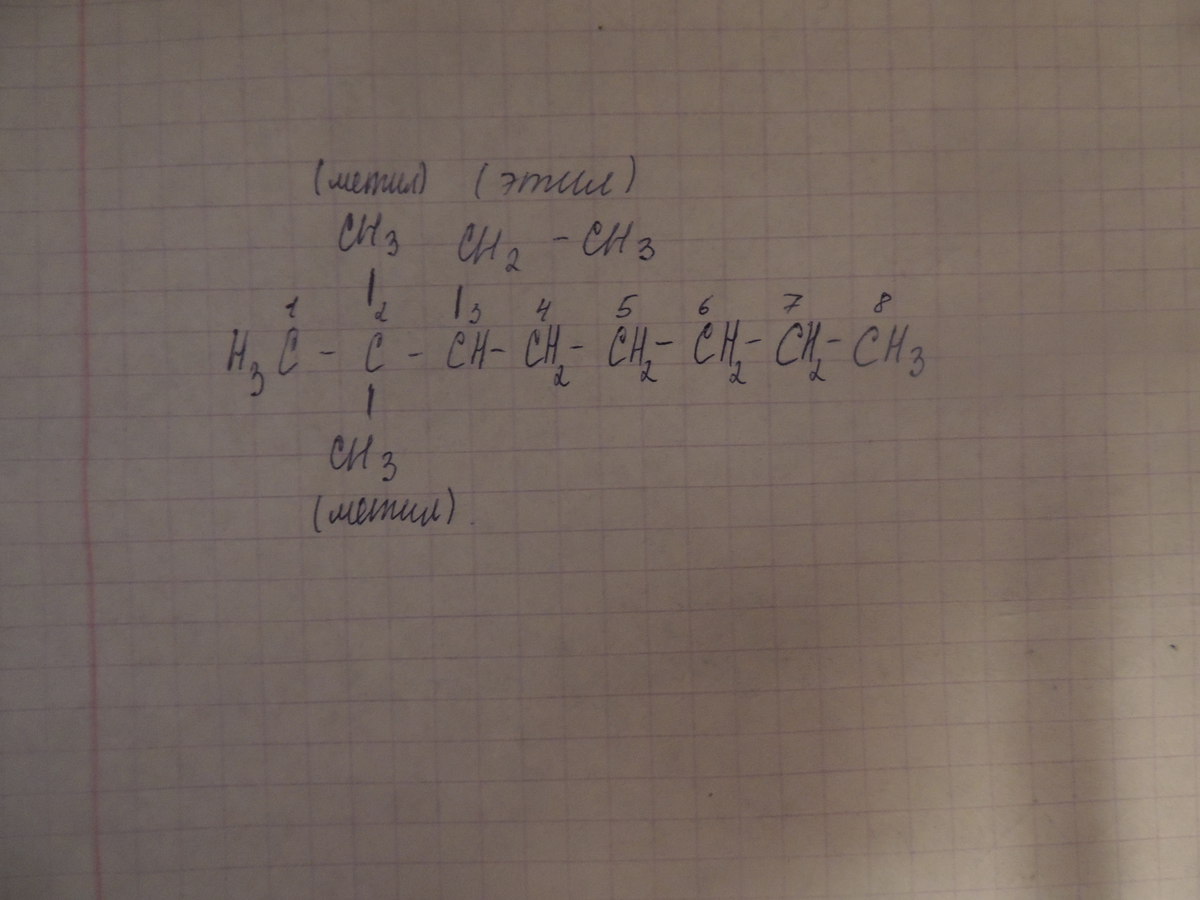 (метил) (этил)
CH3 CH2 - CH3
1 2 3 4 5 6 7 8
H3C - C - CH - CH2 - CH2 - CH2 - CH2 - CH3
CH3
(метил)